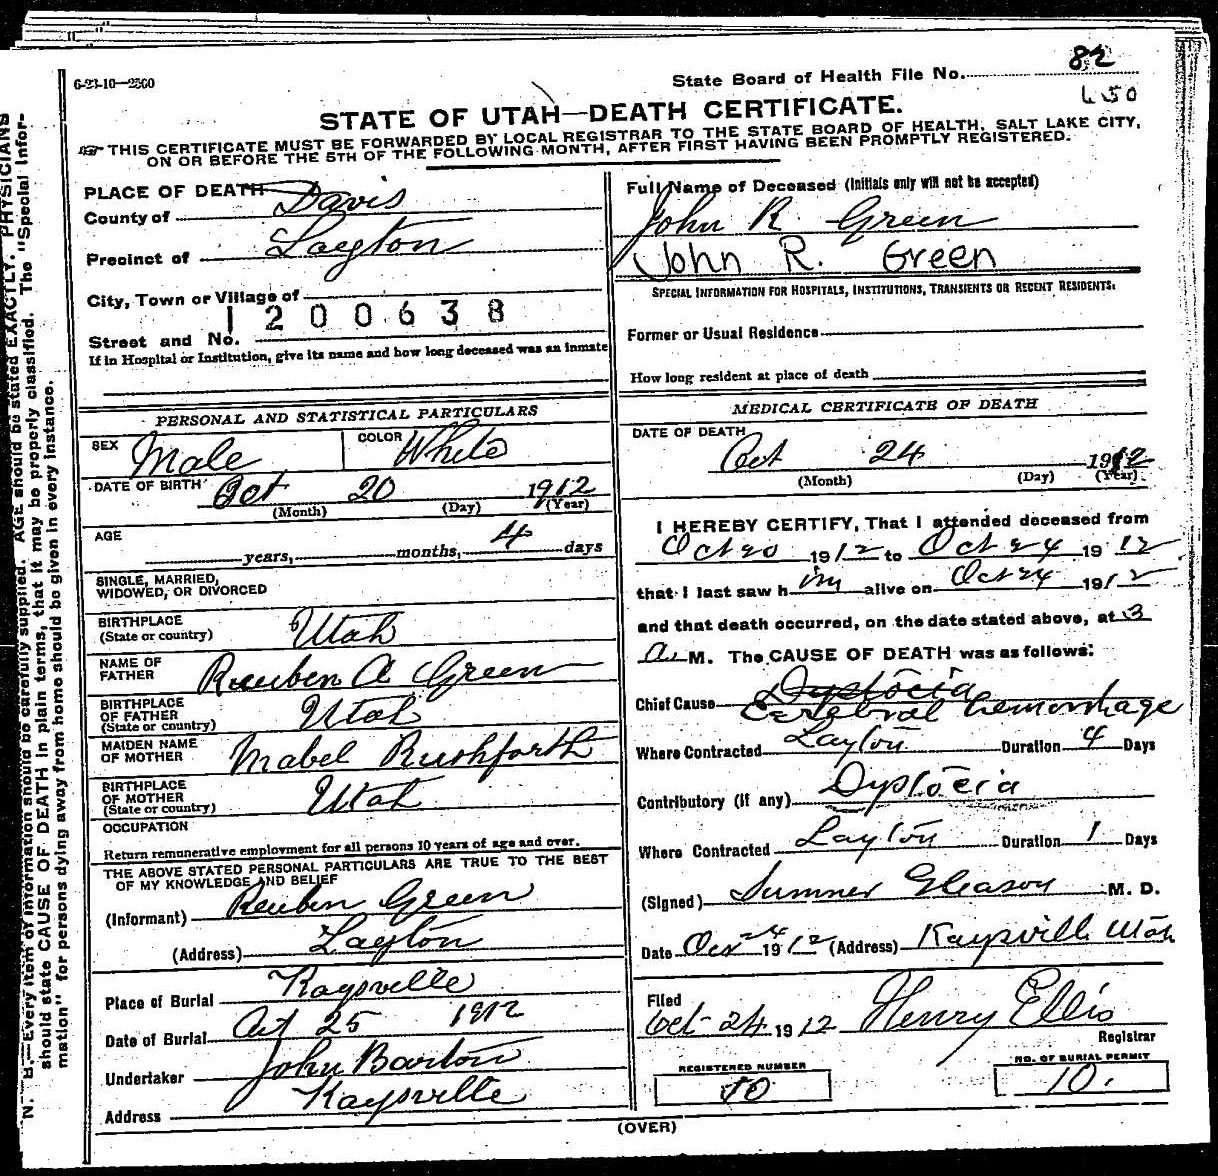 6-23-10—2500
State Board of Health File No. 82
450
STATE OF UTAH—DEATH CERTIFICATE.
THIS CERTIFICATE MUST BE FORWARDED BY LOCAL REGISTRAR TO THE STATE BOARD OF HEALTH, SALT LAKE CITY,
ON OR BEFORE THE 5TH OF THE FOLLOWING MONTH, AFTER FIRST HAVING BEEN PROMPTLY REGISTERED.
PLACE OF DEATH
County of Davis
Precinct of Layton
City, Town or Village of
1200638
Street and No.
If in Hospital or Institution, give its name and how long deceased was an inmate
PERSONAL AND STATISTICAL PARTICULARS
SEX Male COLOR White
DATE OF BIRTH Oct 20 1912
(Month) (Day) (Year)
AGE
years, months, 4 days
SINGLE, MARRIED,
WIDOWED, OR DIVORCED
BIRTHPLACE
(State or country) Utah
NAME OF
FATHER Reuben A Green
BIRTHPLACE
OF FATHER
(State or country) Utah
MAIDEN NAME
OF MOTHER Mabel Rushforth
BIRTHPLACE
OF MOTHER
(State or country) Utah
OCCUPATION
Return remunerative employment for all persons 10 years of age and over.
THE ABOVE STATED PERSONAL PARTICULARS ARE TRUE TO THE BEST
OF MY KNOWLEDGE AND BELIEF
(Informant) Reuben Green
(Address) Layton
Place of Burial Kaysville
Date of Burial Oct 25 1912
Undertaker John Barton
Address Kaysville
Full Name of Deceased (Initials only will not be accepted)
John R Green
John R. Green
SPECIAL INFORMATION FOR HOSPITALS, INSTITUTIONS, TRANSIENTS OR RECENT RESIDENTS.
Former or Usual Residence
How long resident at place of death
MEDICAL CERTIFICATE OF DEATH
DATE OF DEATH
Oct 24 1912
(Month) (Day) (Year)
I HEREBY CERTIFY, That I attended deceased from
Oct 20 1912 to Oct 24 1912
that I last saw him alive on Oct 24 1912
and that death occurred, on the date stated above, at 3
a. M. The CAUSE OF DEATH was as follows:
Dystocia
Chief Cause Cerebral hemorrhage
Where Contracted Layton Duration 4 Days
Contributory (if any) Dystocia
Where Contracted Layton Duration 1 Days
(Signed) Sumner Gleason M. D.
Date Oct 24 1912 (Address) Kaysville Utah
Filed
Oct 24 1912 Henry Ellis
Registrar
REGISTERED NUMBER
10
NO. OF BURIAL PERMIT
10.
(OVER)
N. B.—Every item of information should be carefully supplied. AGE should be stated EXACTLY. PHYSICIANS
should state CAUSE OF DEATH in plain terms, that it may be properly classified. The "Special Infor-
mation" for persons dying away from home should be given in every instance.